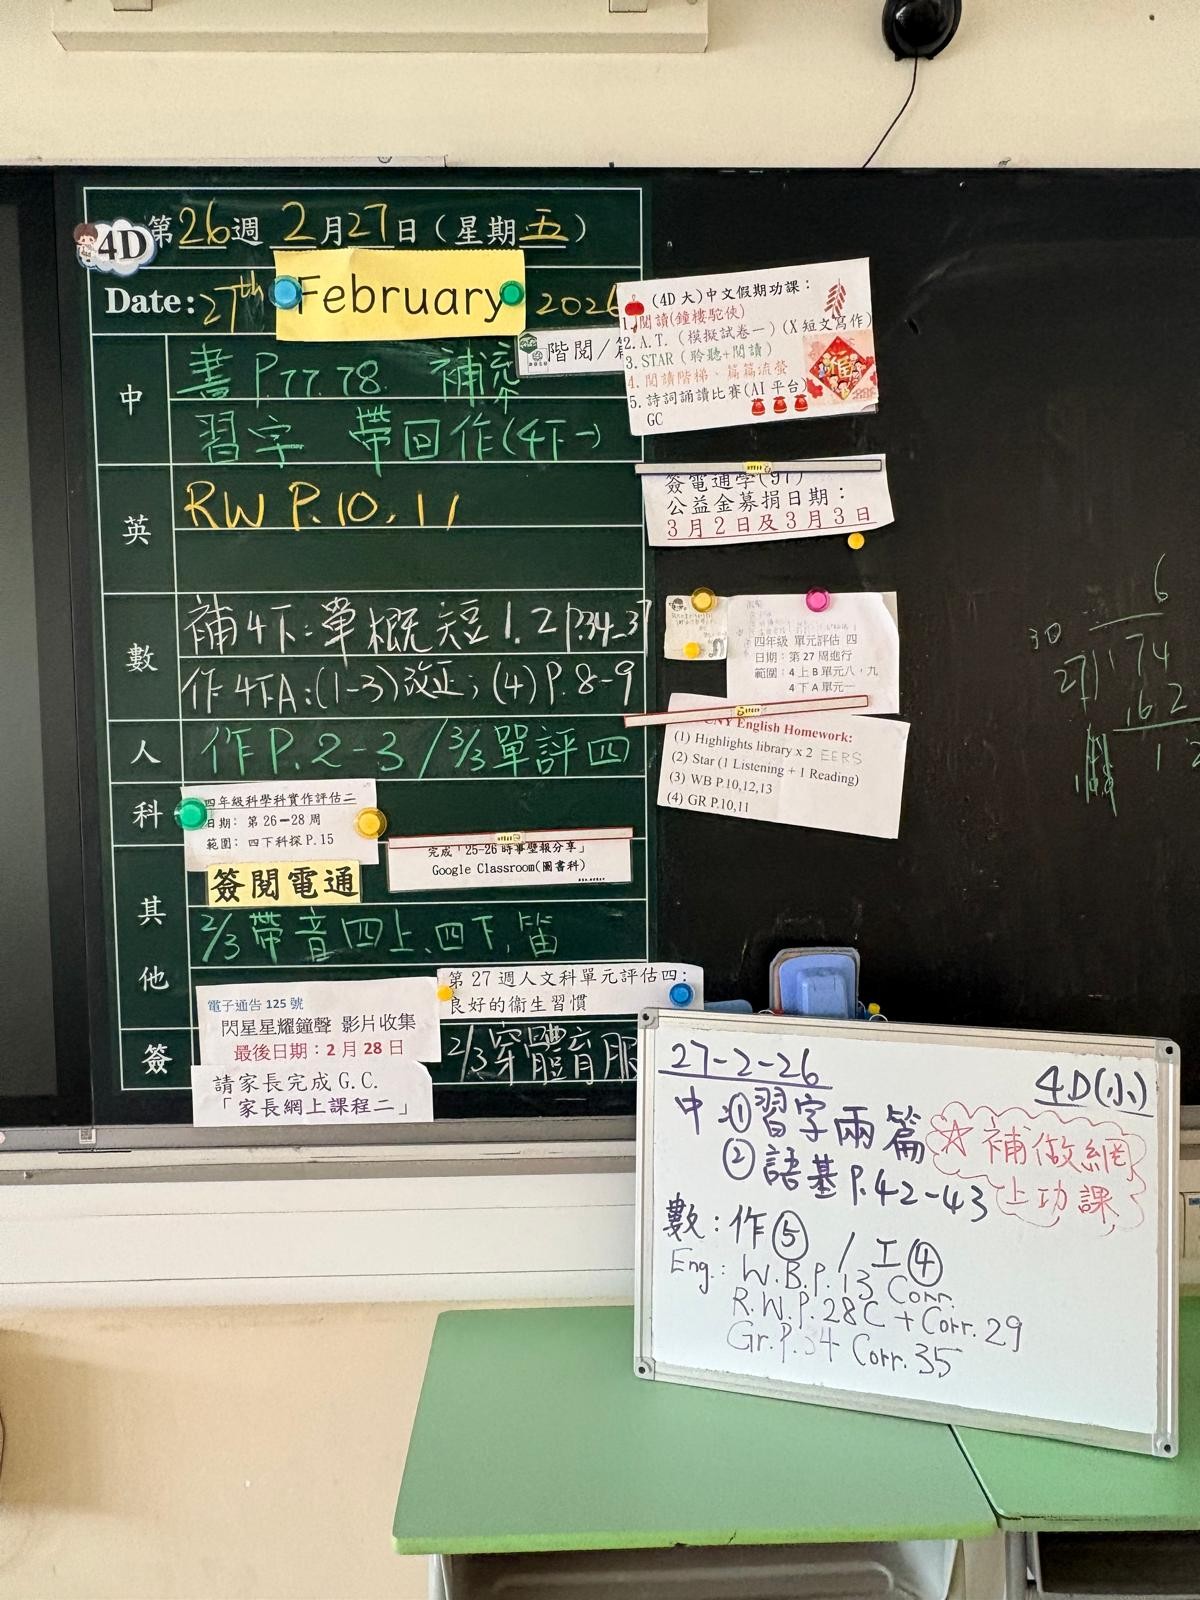 4D
第26週 2月27日(星期五)
Date: 27th February 2026
階閱/
中
書 P.77.78. 補充
習字 帶回作(4下一)
英
RW P.10, 11
數
補4下:單概短1.2 P.34-37
作4下A:(1-3)改正;(4)P.8-9
人
作P.2-3/3/3單評四
科
四年級科學科實作評估二
日期: 第 26-28 周
範圍: 四下科探 P.15
完成「25-26 時事壁報分享」
Google Classroom(圖書科)
其他
簽閱電通
2/3帶音四上、四下,笛
第 27 週人文科單元評估四:
良好的衞生習慣
簽
電子通告 125 號
閃星星耀鐘聲 影片收集
最後日期:2 月 28 日
請家長完成 G.C.
「家長網上課程二」
2/3穿體育服
(4D 大)中文假期功課:
1.閱讀(鐘樓駝俠)
2.A.T.(模擬試卷一)(X 短文寫作)
3.STAR(聆聽+閱讀)
4.閱讀階梯、篇篇流螢
5.詩詞誦讀比賽(AI 平台)
GC
福
簽電通學(97)
公益金募捐日期:
3月2日及3月3日
四年級 單元評估 四
日期:第 27 周進行
範圍:4 上 B 單元八,九
4 下 A 單元一
CNY English Homework:
(1) Highlights library x 2 EERS
(2) Star (1 Listening + 1 Reading)
(3) WB P.10,12,13
(4) GR P.10,11
6
30
27 174
162
12
27-2-26
4D(小)
中:①習字兩篇
②語基P.42-43
☆補做網上功課
數:作⑤/工④
Eng.: W.B.P.13 Corr.
R.W.P.28C + Corr.29
Gr.P.34 + Corr.35